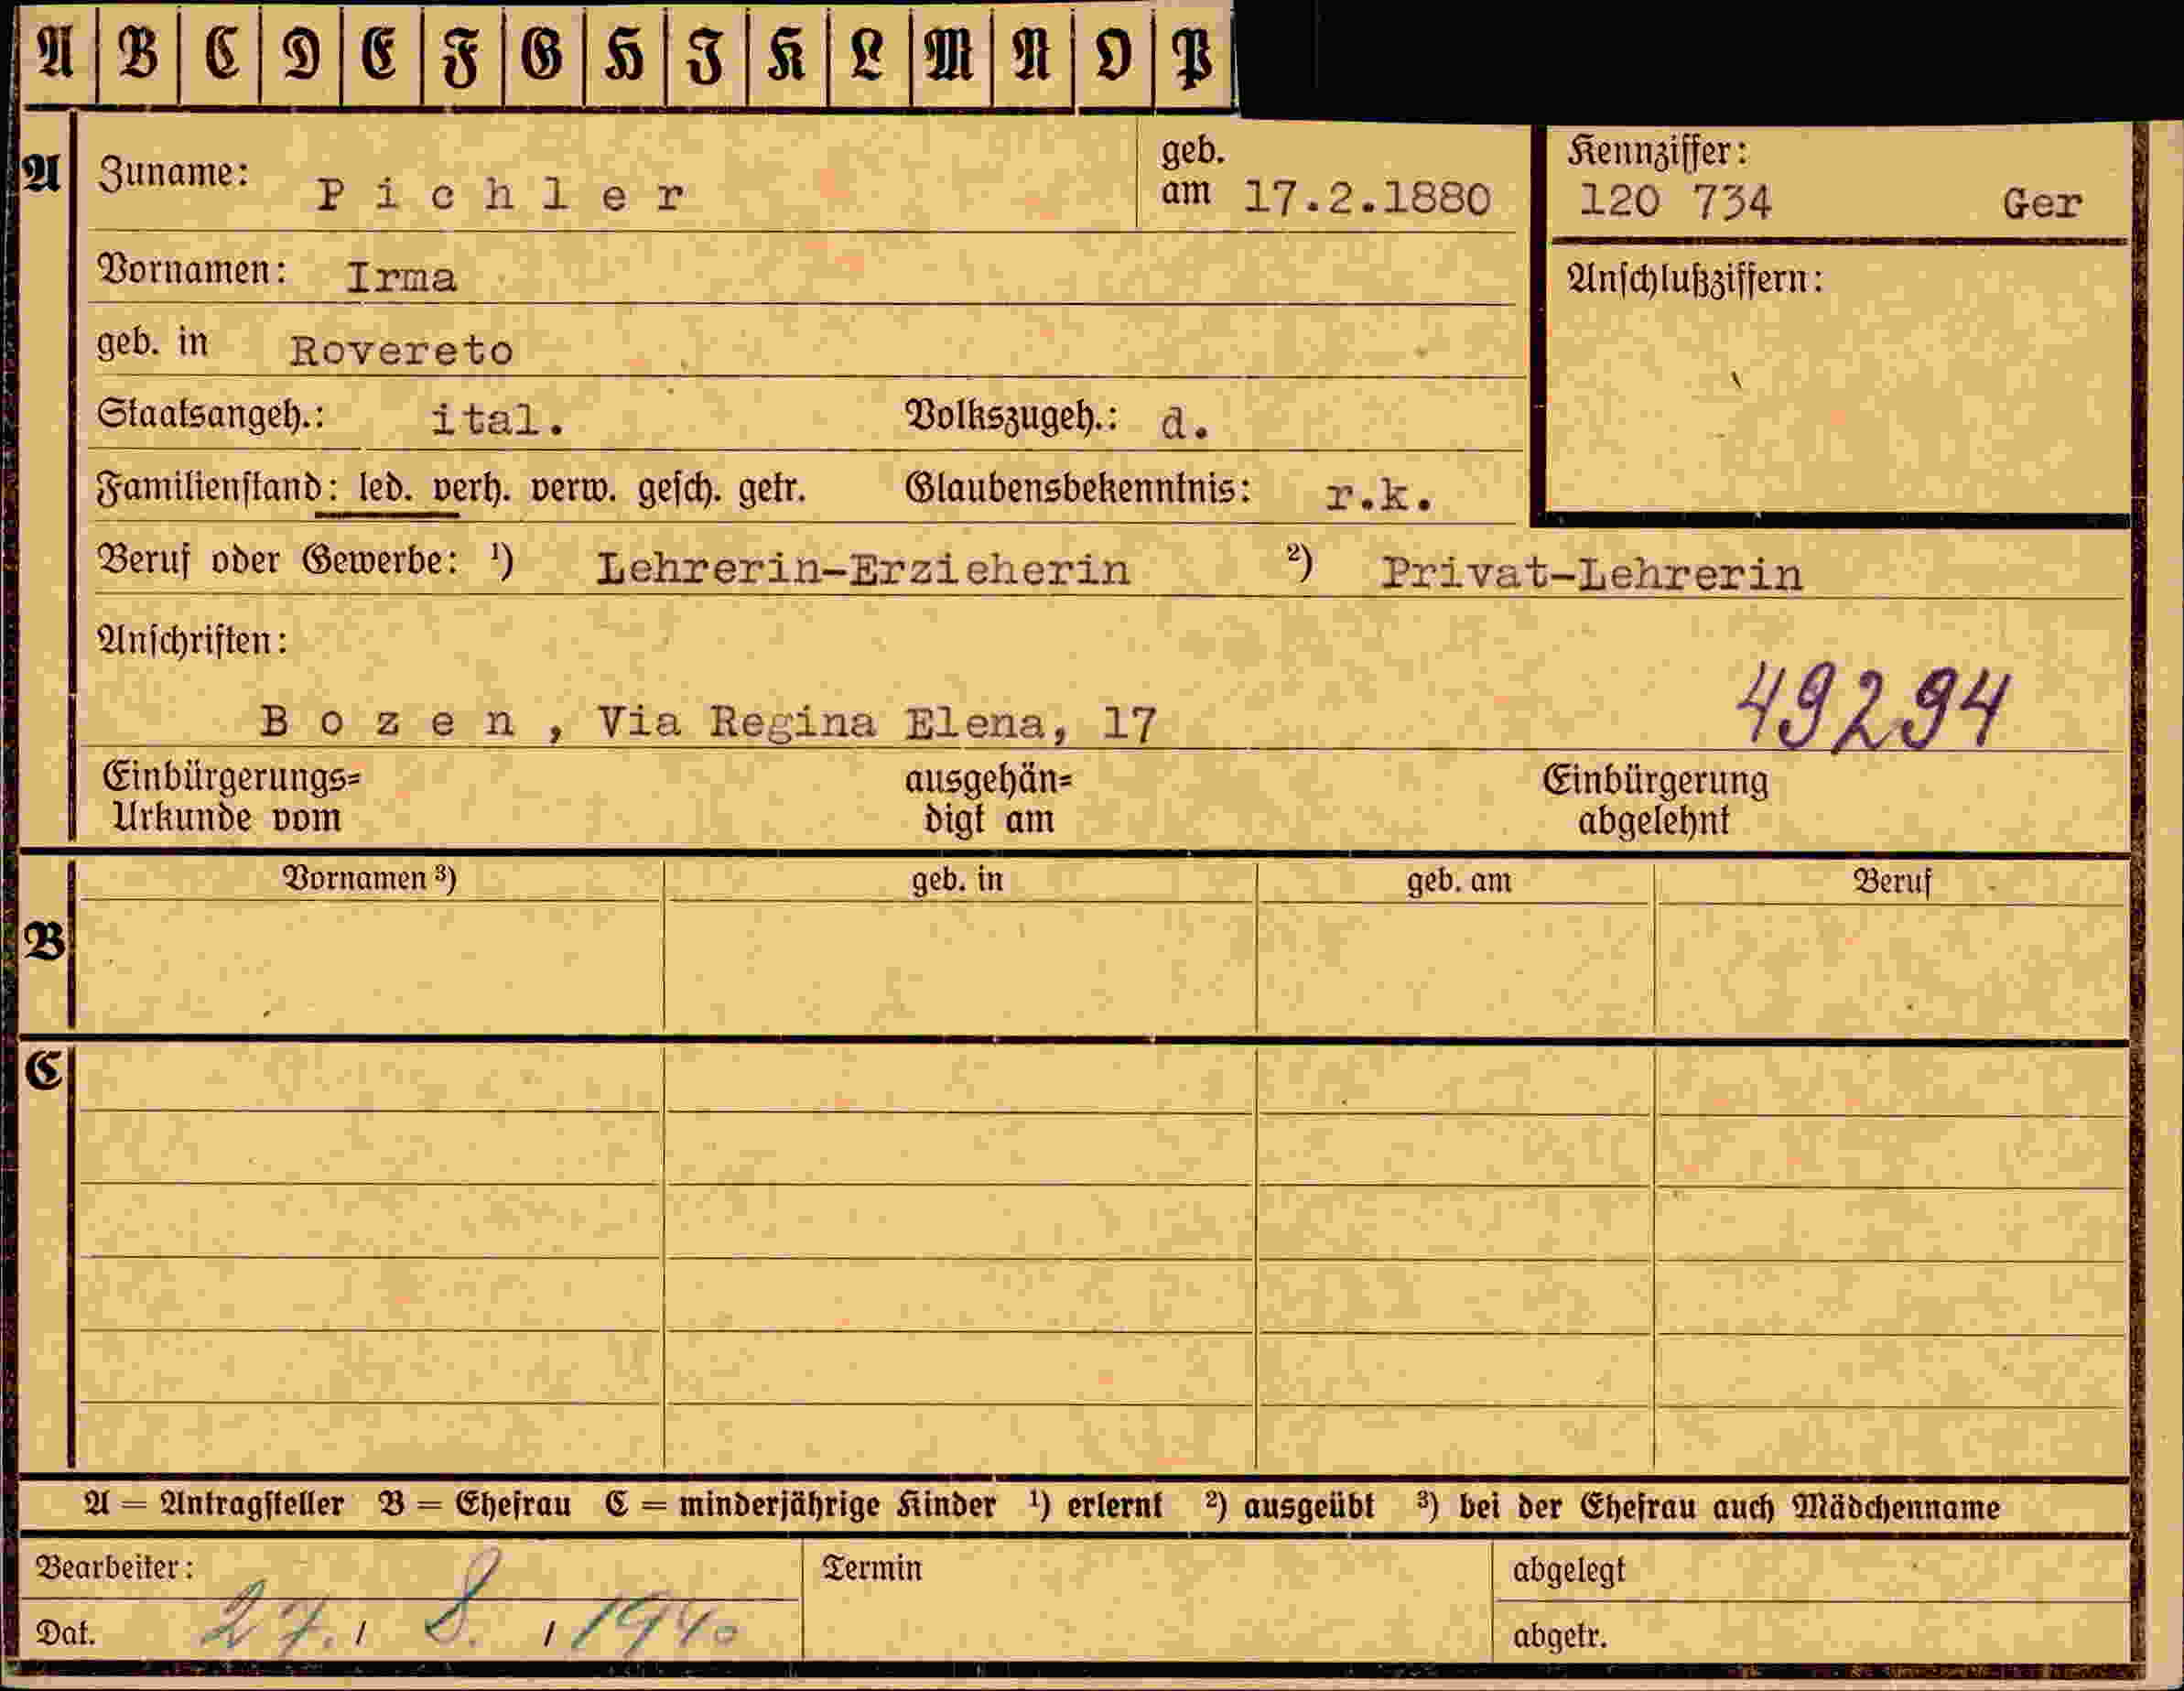 A B C D E F G H I K L M N O P
A Zuname: Pichler geb. am 17.2.1880 Kennziffer: 120 734 Ger
Vornamen: Irma Anschlußziffern:
geb. in Rovereto
Staatsangeh.: ital. Volkszugeh.: d.
Familienstand: led. verh. verw. gesch. getr. Glaubensbekenntnis: r.k.
Beruf oder Gewerbe: ¹) Lehrerin-Erzieherin ²) Privat-Lehrerin
Anschriften:
49294
Bozen, Via Regina Elena, 17
Einbürgerungs= ausgehän= Einbürgerung
Urkunde vom digt am abgelehnt
Vornamen ³) geb. in geb. am Beruf
B
C
A = Antragsteller B = Ehefrau C = minderjährige Kinder ¹) erlernt ²) ausgeübt ³) bei der Ehefrau auch Mädchenname
Bearbeiter: Termin abgelegt
Dat. 27. / 8. / 1940 abgetr.